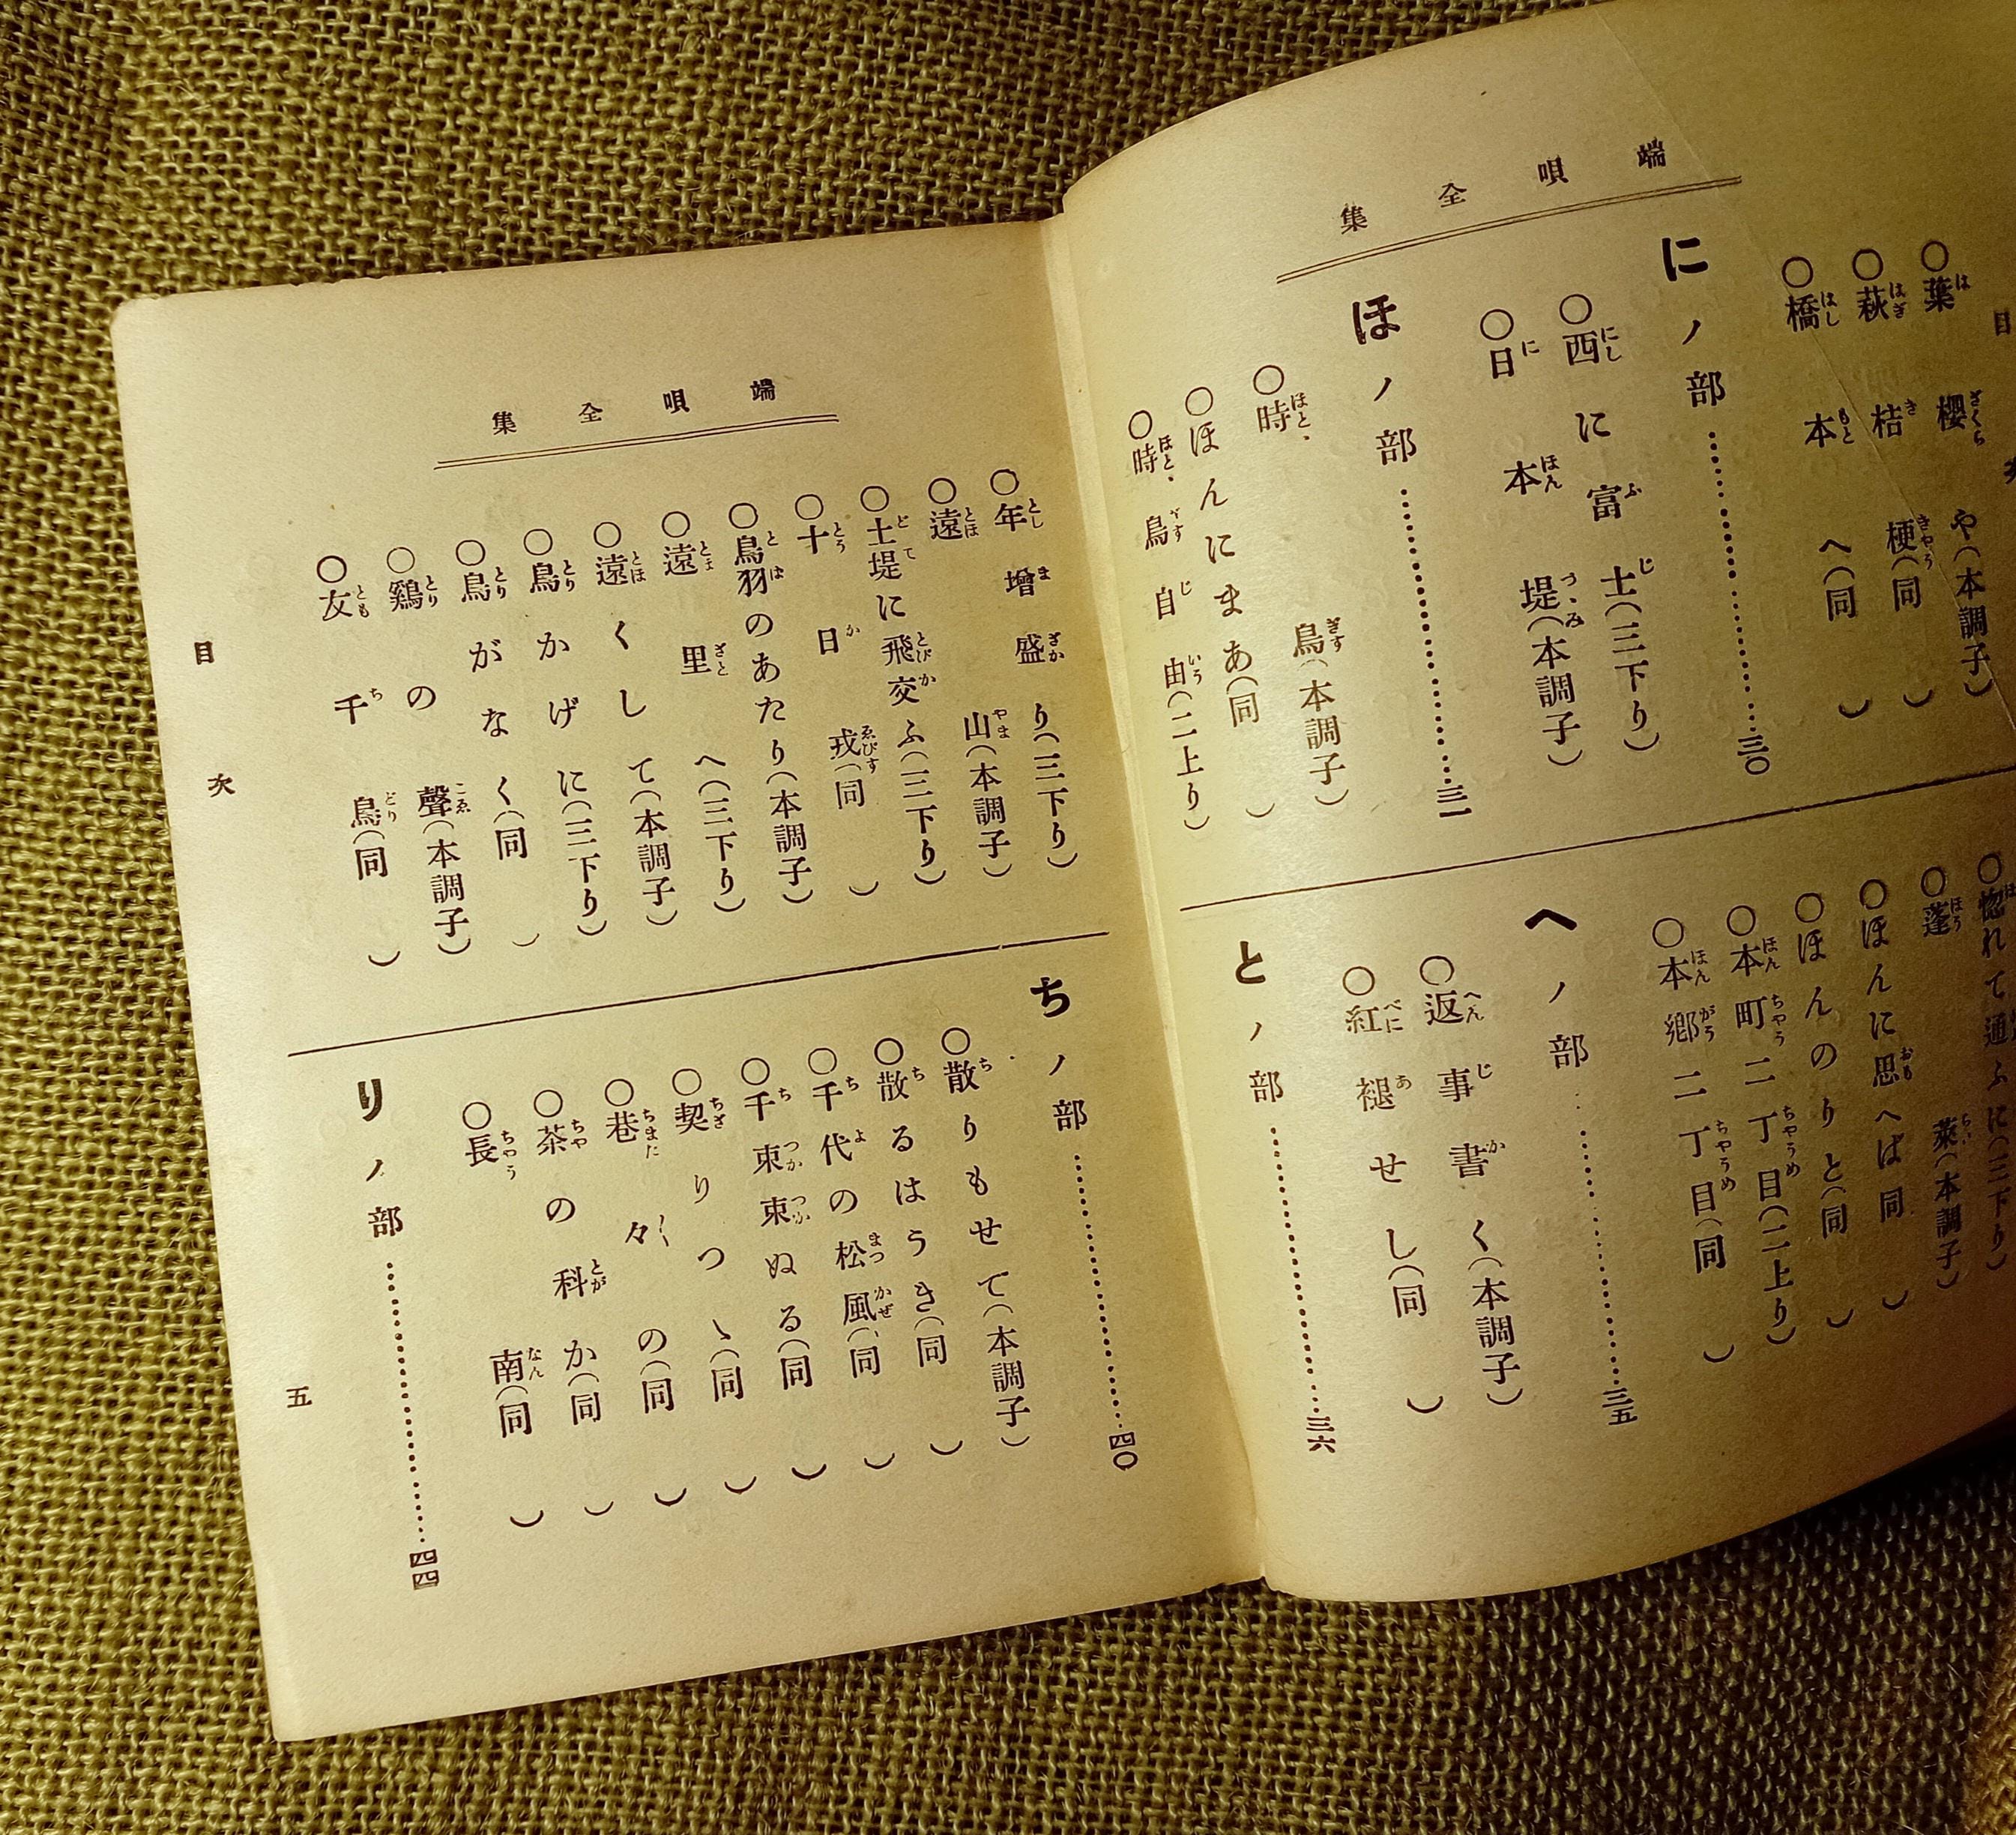 端唄全集
目
○葉櫻や(本調子)
○萩桔梗(同)
○橋本へ(同)
にノ部……三〇
○西に富士(三下り)
○日本堤(本調子)
ほノ部……三一
○時鳥(本調子)
○ほんにまあ(同)
○時鳥自由(二上り)
○惚れて通ふに(三下り)
○蓬萊(本調子)
○ほんに思へば(同)
○ほんのりと(同)
○本町二丁目(二上り)
○本郷二丁目(同)
へノ部……三五
○返事書く(本調子)
○紅褪せし(同)
とノ部……三六
端唄全集
○年增盛り(三下り)
○遠山(本調子)
○土堤に飛交ふ(三下り)
○十日戎(同)
○鳥羽のあたり(本調子)
○遠里へ(三下り)
○遠くして(本調子)
○鳥かげに(三下り)
○鳥がなく(同)
○鷄の聲(本調子)
○友千鳥(同)
ちノ部……四〇
○散りもせで(本調子)
○散るはうき(同)
○千代の松風(同)
○千束束ぬる(同)
○契りつゝ(同)
○巷々の(同)
○茶の科か(同)
○長南(同)
りノ部……四四
目次
五